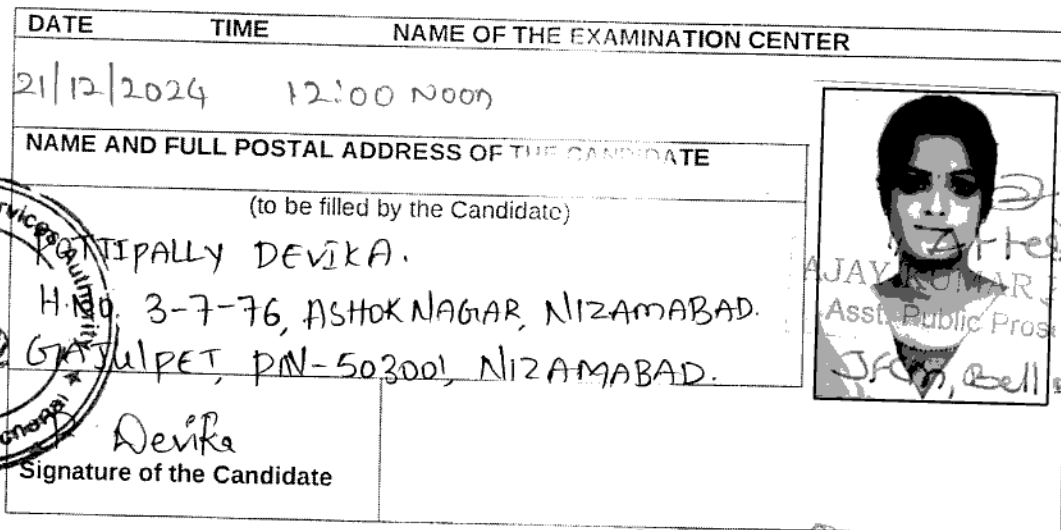 DATE TIME NAME OF THE EXAMINATION CENTER
21/12/2024 12:00 Noon
NAME AND FULL POSTAL ADDRESS OF THE CANDIDATE
(to be filled by the Candidate)
DEVIKA.
H.NO. 3-7-76, ASHOK NAGAR, NIZAMABAD.
GAJUlPET, PIN-503001, NIZAMABAD.
Devika
Signature of the Candidate
AJAY KUMAR
Asst. Public
JFCM, Bell